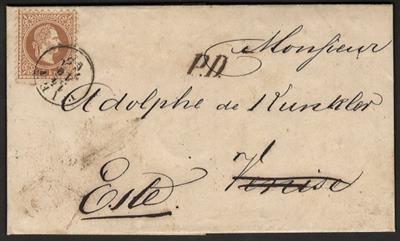 Monsieur
P.D.
Adolphe de Kunkler
Venise
Este